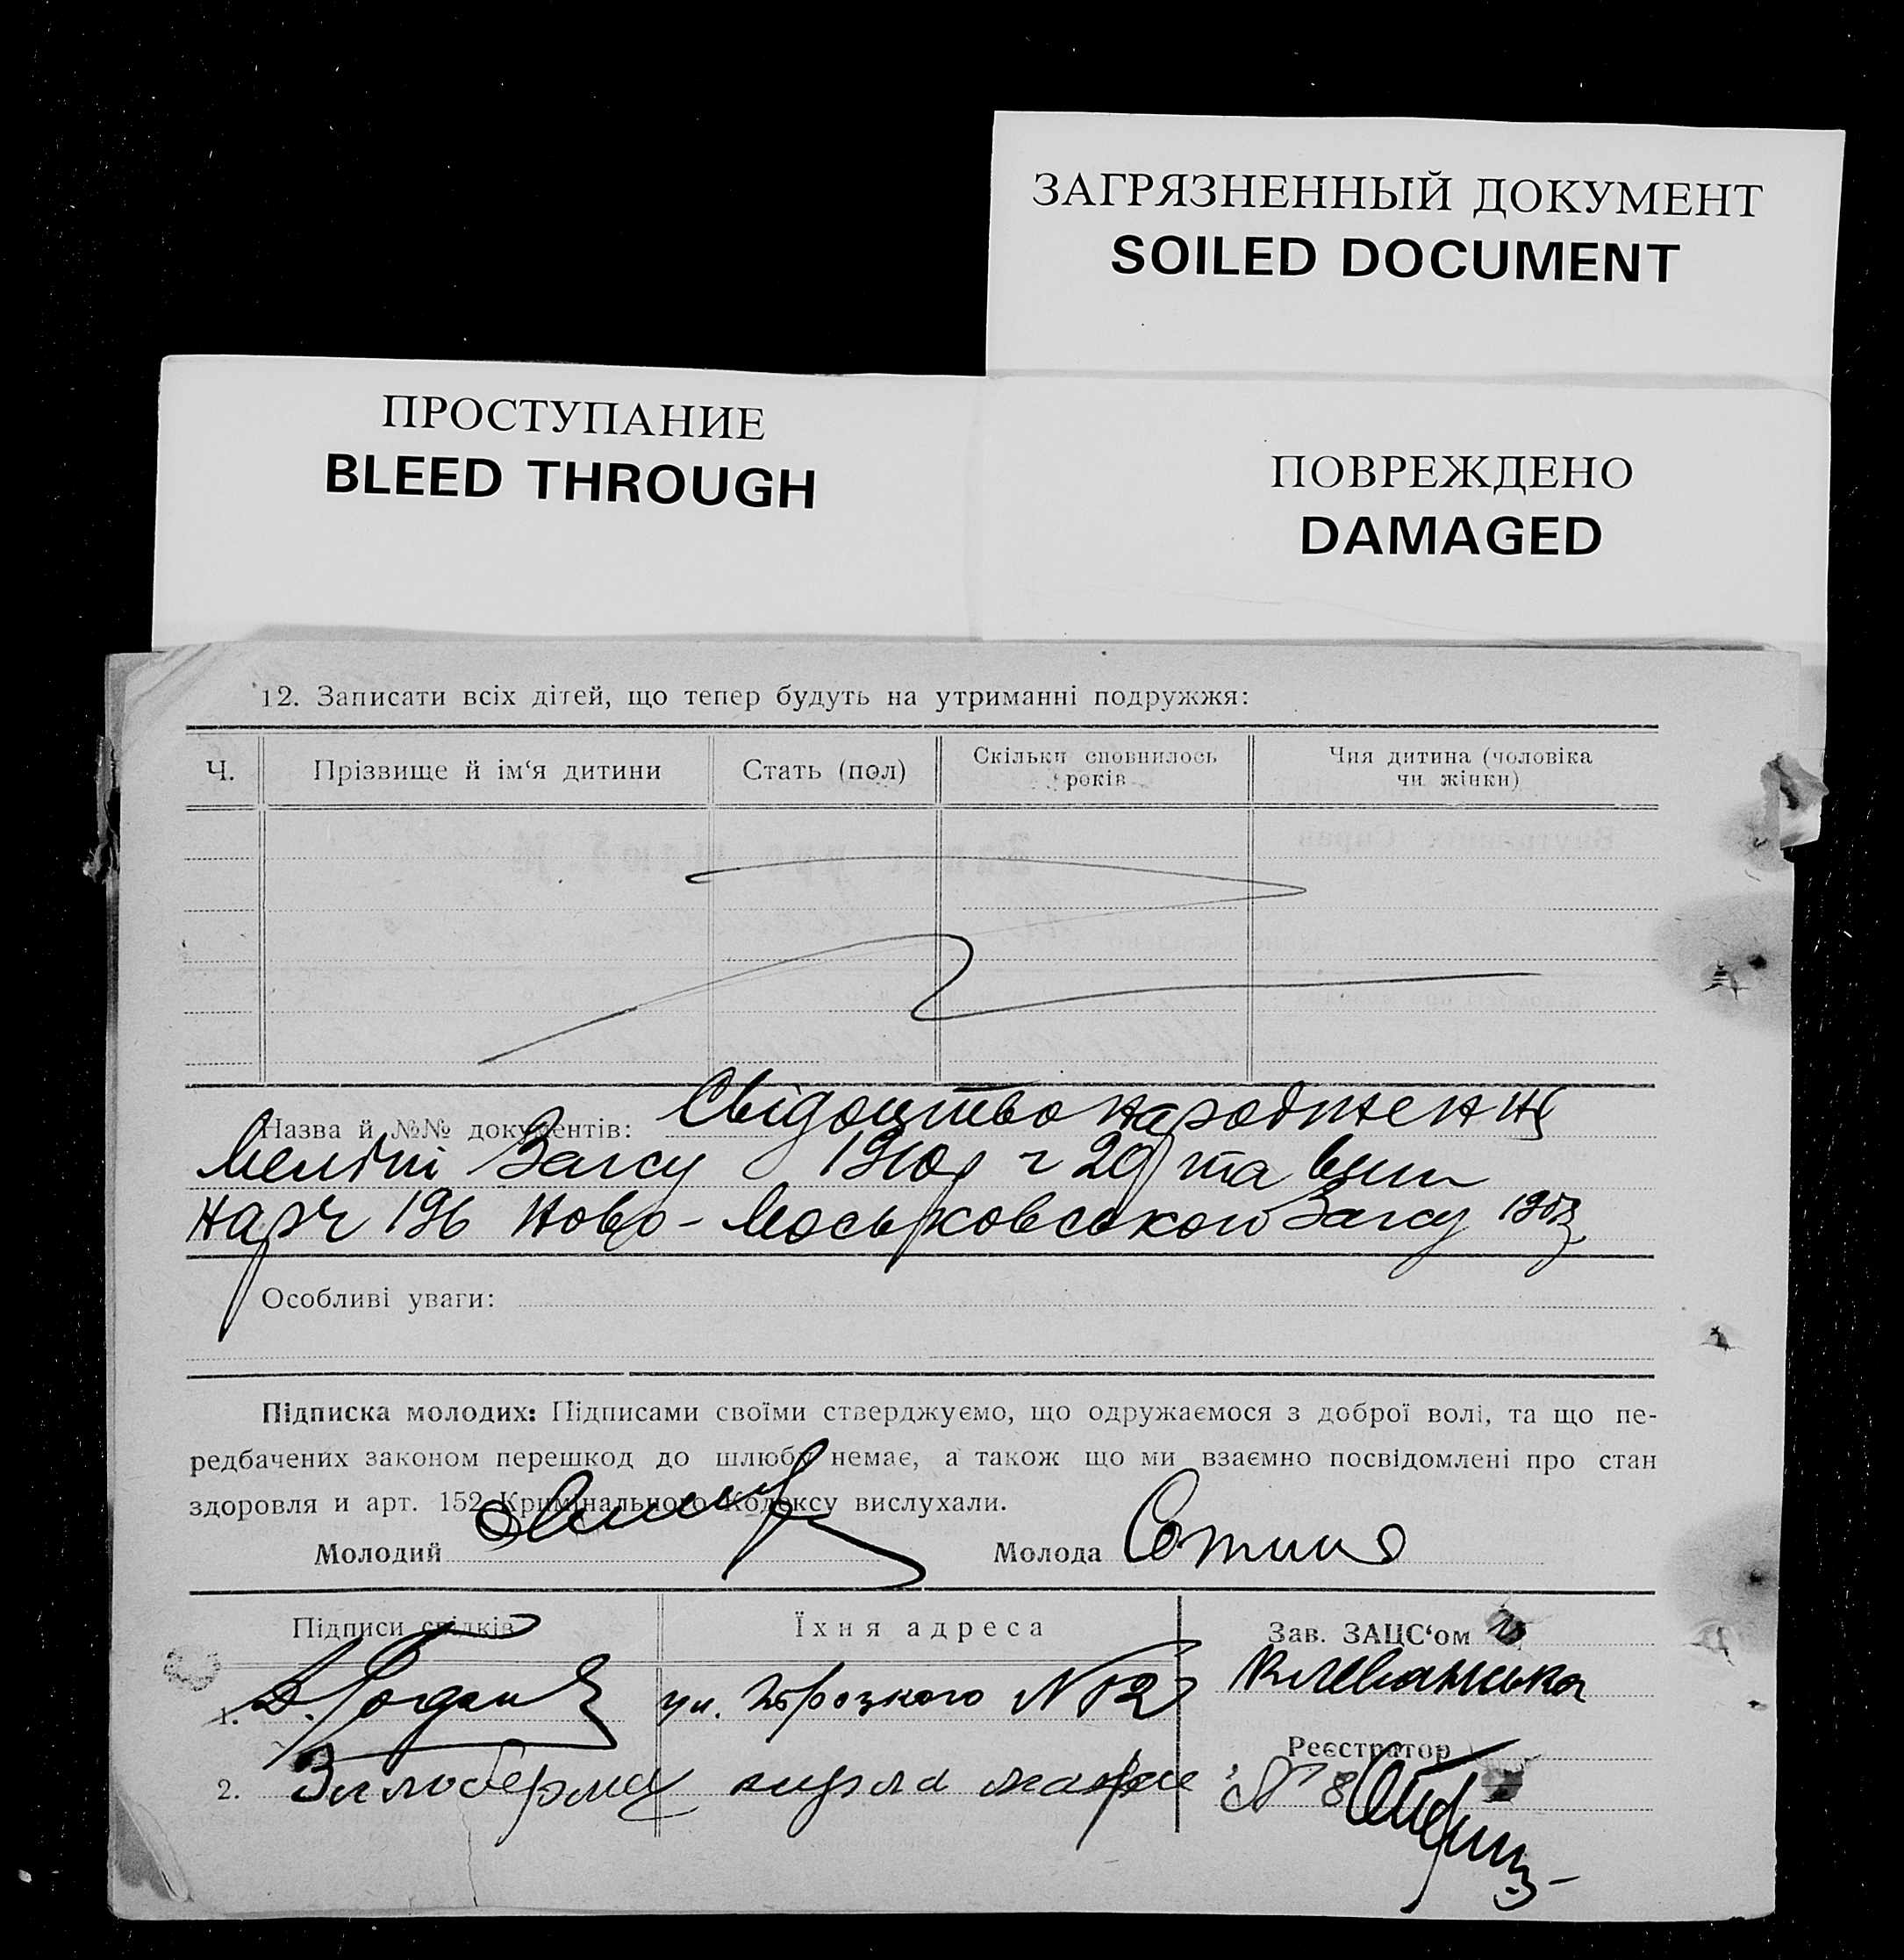 ЗАГРЯЗНЕННЫЙ ДОКУМЕНТ
SOILED DOCUMENT
ПРОСТУПАНИЕ
BLEED THROUGH
ПОВРЕЖДЕНО
DAMAGED
12. Записати всіх дітей, що тепер будуть на утриманні подружжя:
Ч.
Прізвище й ім‘я дитини
Стать (пол)
Скільки сповнилось
років
Чия дитина (чоловіка
чи жінки)
Назва й №№ документів: Свідоцтво народження
Загсу 1910 29 та
196 Ново-Московського Загсу 1903
Особливі уваги:
Підписка молодих: Підписами своїми стверджуємо, що одружаємося з доброї волі, та що пе-
редбачених законом перешкод до шлюбу немає, а також що ми взаємно посвідомлені про стан
здоровля и арт. 152 Кримінального Кодексу вислухали.
Молодий
Молода
Підписи свідків
Їхня адреса
Зав. ЗАЦС‘ом
1. ул. N 12
Реєстратор
2. карла маркса N 8